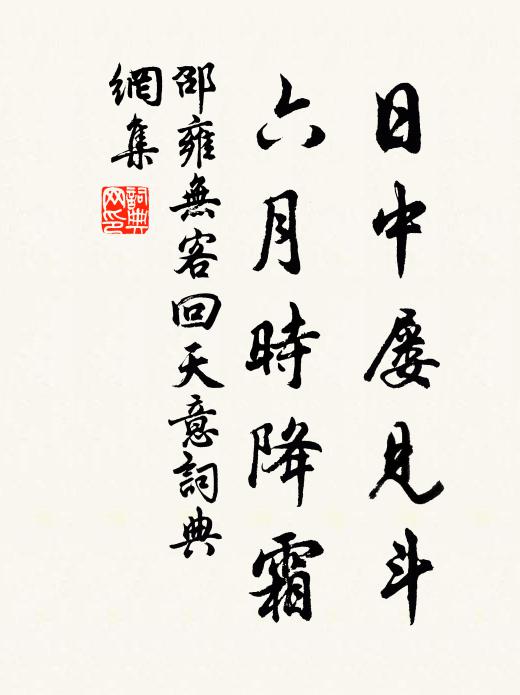 日中屡見斗
六月時降霜
邵雍無客回天意詞典
網集
詞典
网印